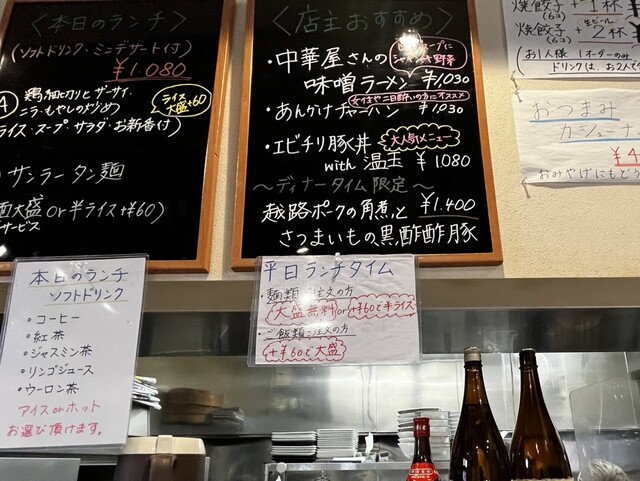 〈本日のランチ〉
(ソフトドリンク・ミニデザート付)
¥1.080
A 鶏細切りとザーサイ、
ニラ・もやしの炒め
ライス大盛+60
ライス・スープ・サラダ・お新香付)
サンラータン麺
麺大盛 or 半ライス+¥60)
サービス
〈店主おすすめ〉
・中華屋さんの
味噌ラーメン ¥1,030
シャキシャキ野菜
・あんかけチャーハン ¥1,030
・エビチリ豚丼
大人気メニュー
with 温玉 ¥1080
～ディナータイム限定～
越路ポークの角煮と ¥1.400
さつまいもの黒酢酢豚
焼餃子(6コ) +1杯
焼餃子(6コ) +生ビール2杯
(お1人様 1オーダーのみ
ドリンクは、お2人で
おつまみ
カシューナ
¥4
おみやげにもど
本日のランチ
ソフトドリンク
・コーヒー
・紅茶
・ジャスミン茶
・リンゴジュース
・ウーロン茶
アイス or ホット
お選び頂けます。
平日ランチタイム
・麺類ご注文の方
大盛無料 or +¥60で半ライス
・ご飯類ご注文の方
+¥60で大盛